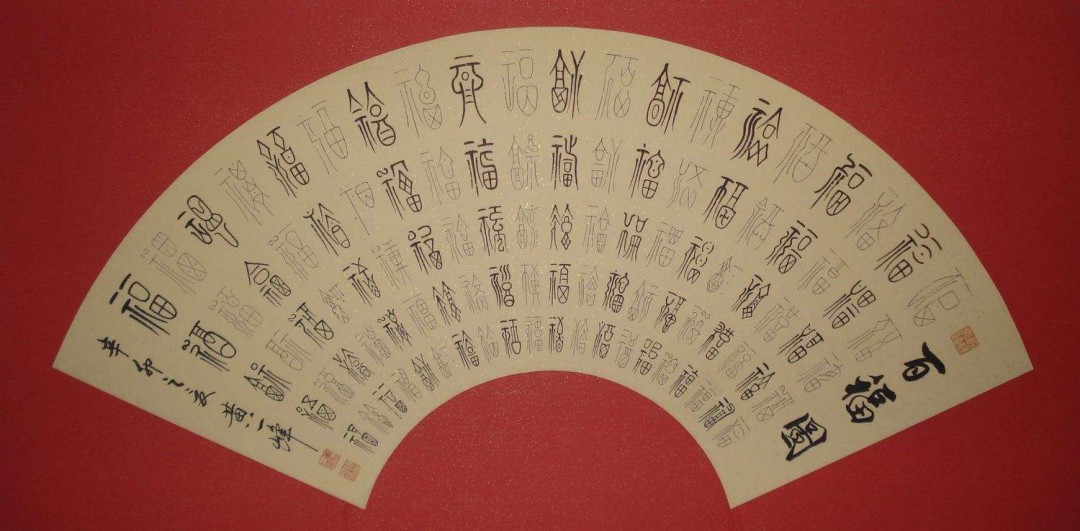 百福圖
福福福福福福福福福福福福福福福福福福福福
福福福福福福福福福福福福福福福福福福福福
福福福福福福福福福福福福福福福福福福福福
福福福福福福福福福福福福福福福福福福福福
福福福福福福福福福福福福福福福福福福福福
辛卯之夏黄一